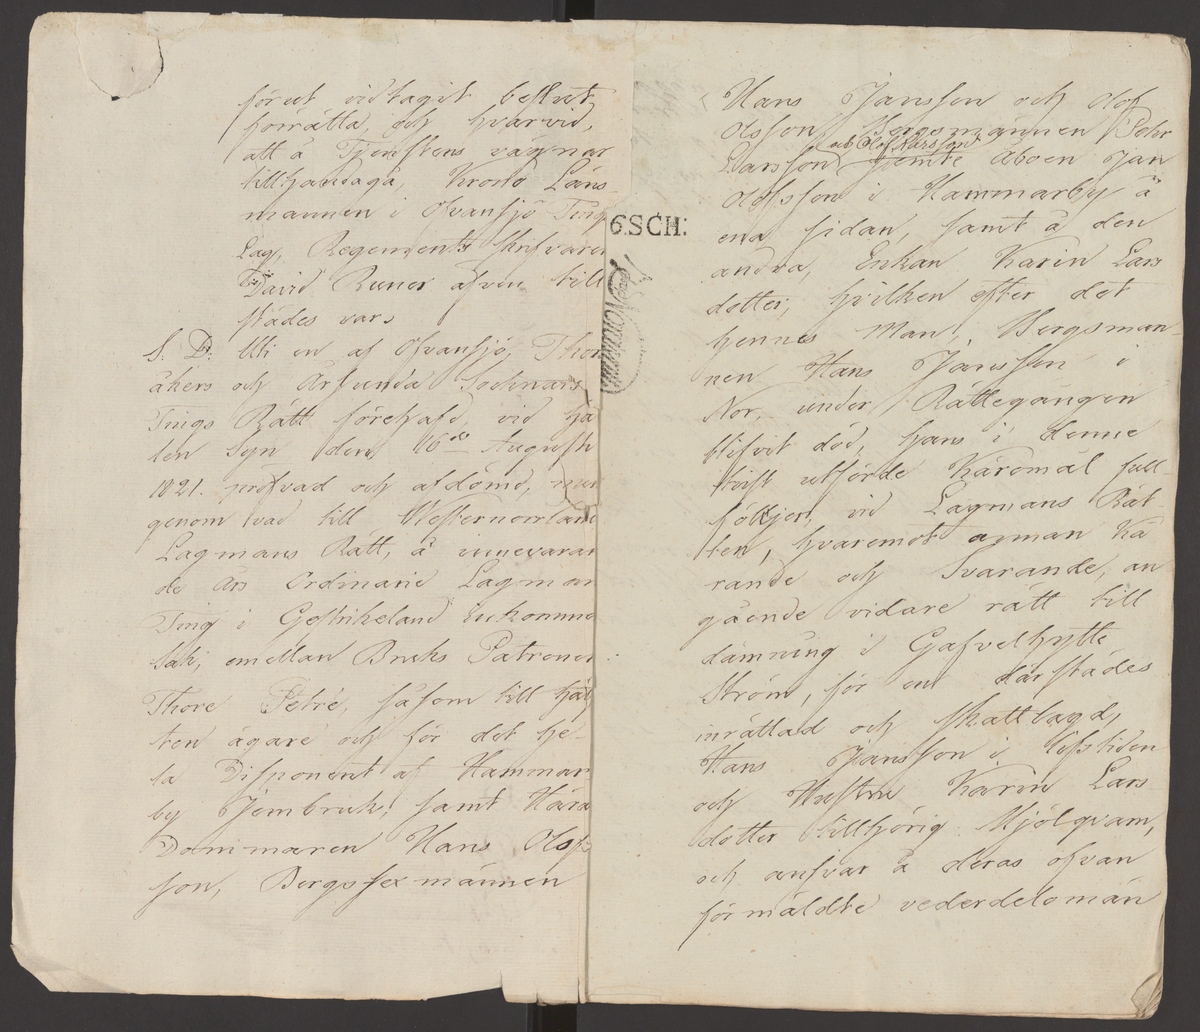 förut vidtagit beslut
förrätta, och hvarvid,
att å Tjenstens vägnar
tillhandagå, Krono Läns-
mannen i Ofvansjö Ting
Lag, Regements skrifvaren
David Runer äfven till
städes var.
S. D: Uti en af Ofvansjö, Thors
åkers och Årsunda Sockenars
Tings Rätt företagd, vid hål
len Syn den 16de Augusti
1821. pröfvad och afdömd, men
genom vad till Westernorrland
Lagmans Rätt, å innevaran
de års Ordinarie Lagmans
Ting i Gestrikeland inkommen
Sak, emellan Bruks Patronen
Thore Petré, såsom till hälf
ten ägare och för det he-
la Disponent af Hammar
by Jernbruk, samt Härads
Dommaren Hans Olofs
son, Bergssexmännen
6.SCH:
Hans Jansson och Olof
Olsson Bergsmännen Pehr
ab Olof Larsson
Larsson jemte Åboen Jan
Olofsson i Hammarby å
ena sidan, samt å den
andra, Enkan Karin Lars
dotter, hvilken efter det
hennes Man, Bergsman
nen Hans Jansson i
Nor, under Rättegången
blifvit död, hans i denne
tvist utförde Käromål full-
följer, vid Lagmans Rät-
ten, hvaremot annan Kä
rande och Svarande, an
gående vidare rätt till
dämning i Gafvelhytte
Ström, för en därstädes
inrättad och skattlagd,
Hans Jansson i lifstiden
och Hustru Karin Lars
dotter tillhörig Mjölqvarn,
och ansvar å deras ofvan
förmäldte vederdelomän